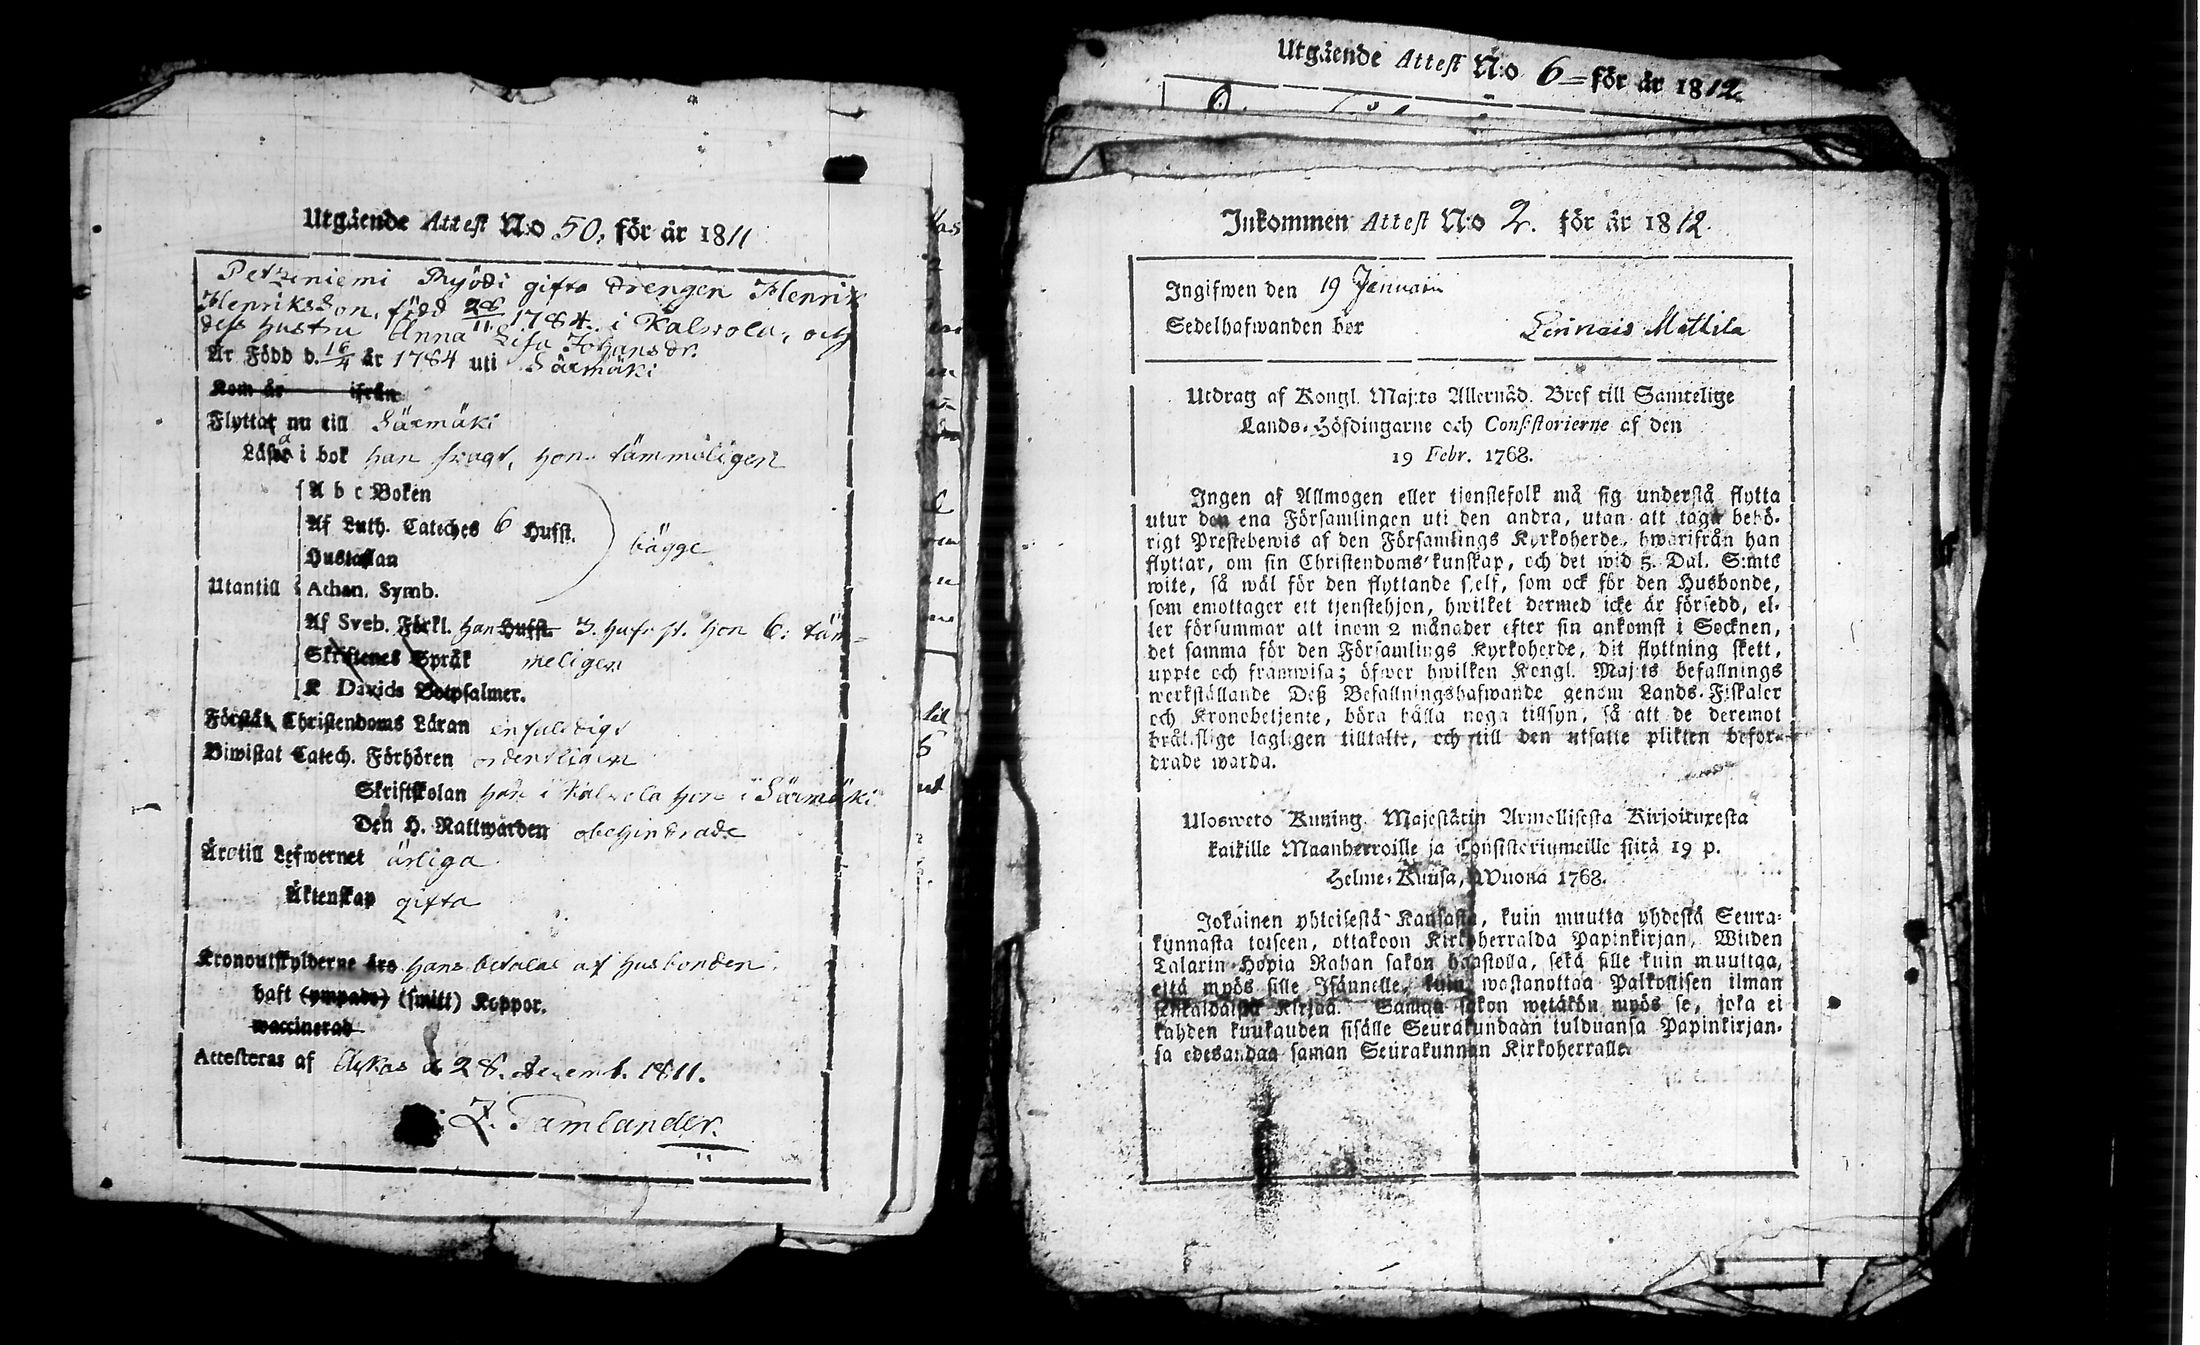 Utgående Attest N:o 50, för år 1811
Petzeniemi Pryödi gifta drengen Henrik
Henriksson, född 28/11 1784. i Kalwola, och
dess hustru Anna Lisa Johansdr.
Är Född d. 16/4 år 1784 uti Säxmäki
Kom år ifrån
Flyttat nu till Säxmäki
Läsa i bok han svagt, hon tämmeligen
A b c Boken
Af Luth. Cateches 6 Hufst.
Hustaflan
bägge
Utantill Athan. Symb.
Af Sveb. Förkl. han Hufst. 3. hufvst. hon 6. täm=
Skriftenes Språk meligen
K Davids Botpsalmer.
Förstår Christendoms Läran enfaldigt
Biwistat Catech. Förhören ordentligen
Skriftskolan han i Kalvola hon i Säxmäki
Den H. Nattwarden obehindrade
Äro till Lefwernet ärliga
Äktenskap gifta
Kronoutskylderne äro hans betalas af husbonden.
haft (ympade) (smitt) Koppor.
waccinerad
Attesteras af Akkas d 28. decemb. 1811.
Z. Tamlander.
Utgående Attest N:o 6 för år 1812.
Inkommen Attest N:o 2. för år 1812.
Ingifwen den 19 Januarii
Sedelhafwanden bor Mattila
Utdrag af Kongl. Maj:ts Allernåd. Bref till Samtelige
Lands-Höfdingarne och Consistorierne af den
19 Febr. 1768.
Ingen af Allmogen eller tjenstefolk må sig understå flytta
utur den ena Församlingen uti den andra, utan att taga behö-
rigt Prestebewis af den Församlings Kyrkoherde, hwarifrån han
flyttar, om sin Christendoms kunskap, och det wid 5. Dal. S:mts
wite, så wäl för den flyttande self, som ock för den Husbonde,
som emottager ett tjenstehjon, hwilket dermed icke är försedd, el-
ler försummar att inom 2 månader efter sin ankomst i Socknen,
det samma för den Församlings Kyrkoherde, dit flyttning skett,
uppte och framwisa; öfwer hwilken Kongl. Maj:ts befallnings
werkställande Deß Befallningshafwande genom Lands-Fiskaler
och Kronobetjente, böra hålla noga tillsyn, så att de deremot
bråtslige lagligen tilltalte, och till den utsatte plikten befor-
drade warda.
Ulosweto Kuning. Majestätin Armollisesta Kirjoituxesta
kaikille Maanherroille ja Consistoriumeille siitä 19 p.
Helme-Kuusa, Wuona 1768.
Jokainen yhteisestä Kansasta, kuin muutta yhdestä Seura-
kunnasta toiseen, ottakoon Kirkoherralda Papinkirjan, Wiiden
Talarin Hopia Rahan sakon haastolla, sekä sille kuin muuttaa,
että myös sille Isännelle, kuin wastanottaa Palkollisen ilman
senkaldaista Kirjaa. Saman sakon wetäkön myös se, joka ei
kahden kuukauden sisälle Seurakundaan tulduansa Papinkirjan-
sa edesandaa saman Seurakunnan Kirkoherralle.